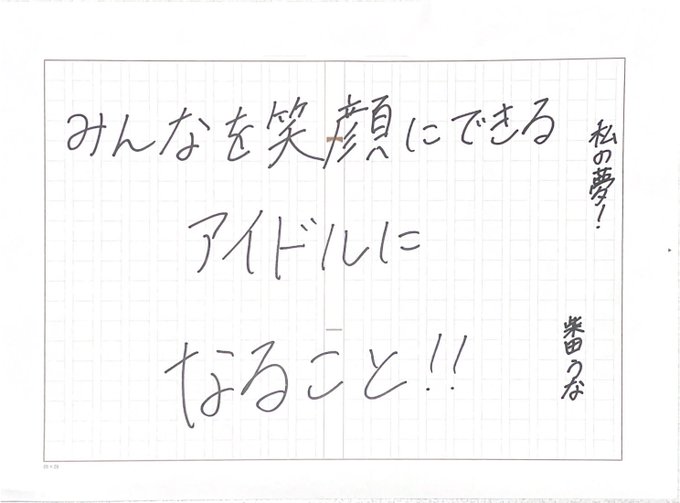 私の夢!
柴田うな
みんなを笑顔にできる
アイドルに
なること!!